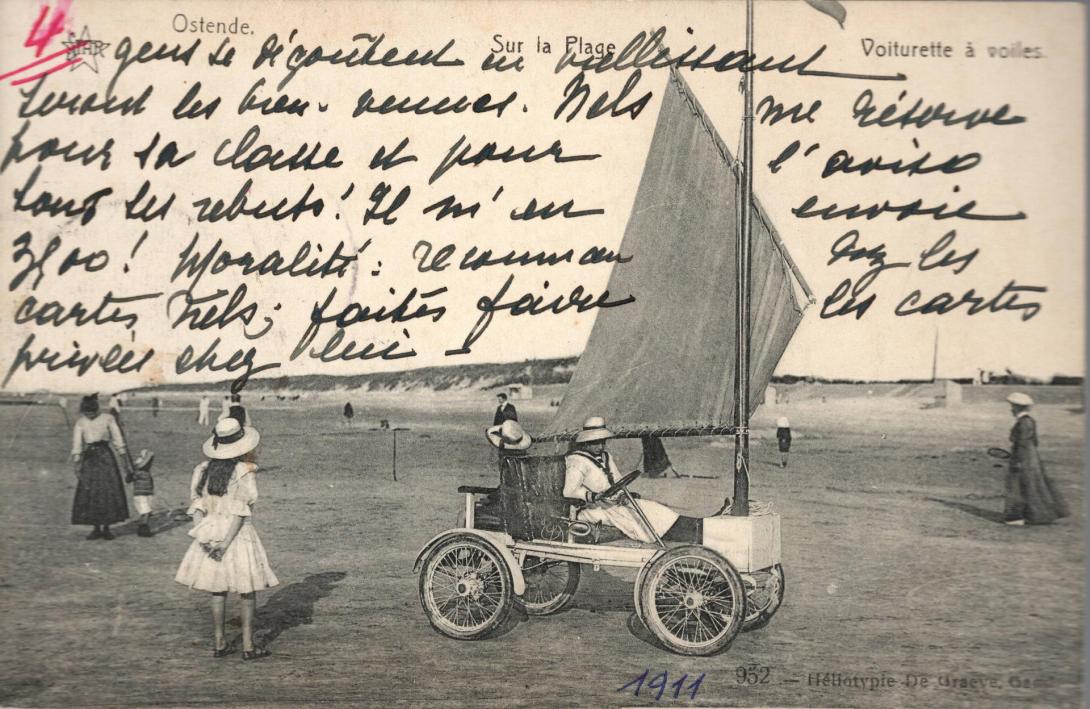 4
STAR
Ostende.
Sur la Plage
Voiturette à voiles.
gens se dégoûtent en vieillissant
seront les bien-venues. Nels me réserve
pour sa classe et pour l'avis
tous les rebuts! Il m'en envoie
300! Moralité: recomman dez les
cartes Nels; faites faire les cartes
privées chez lui –
1911
952 — Héliotypie De Graeve, Gand